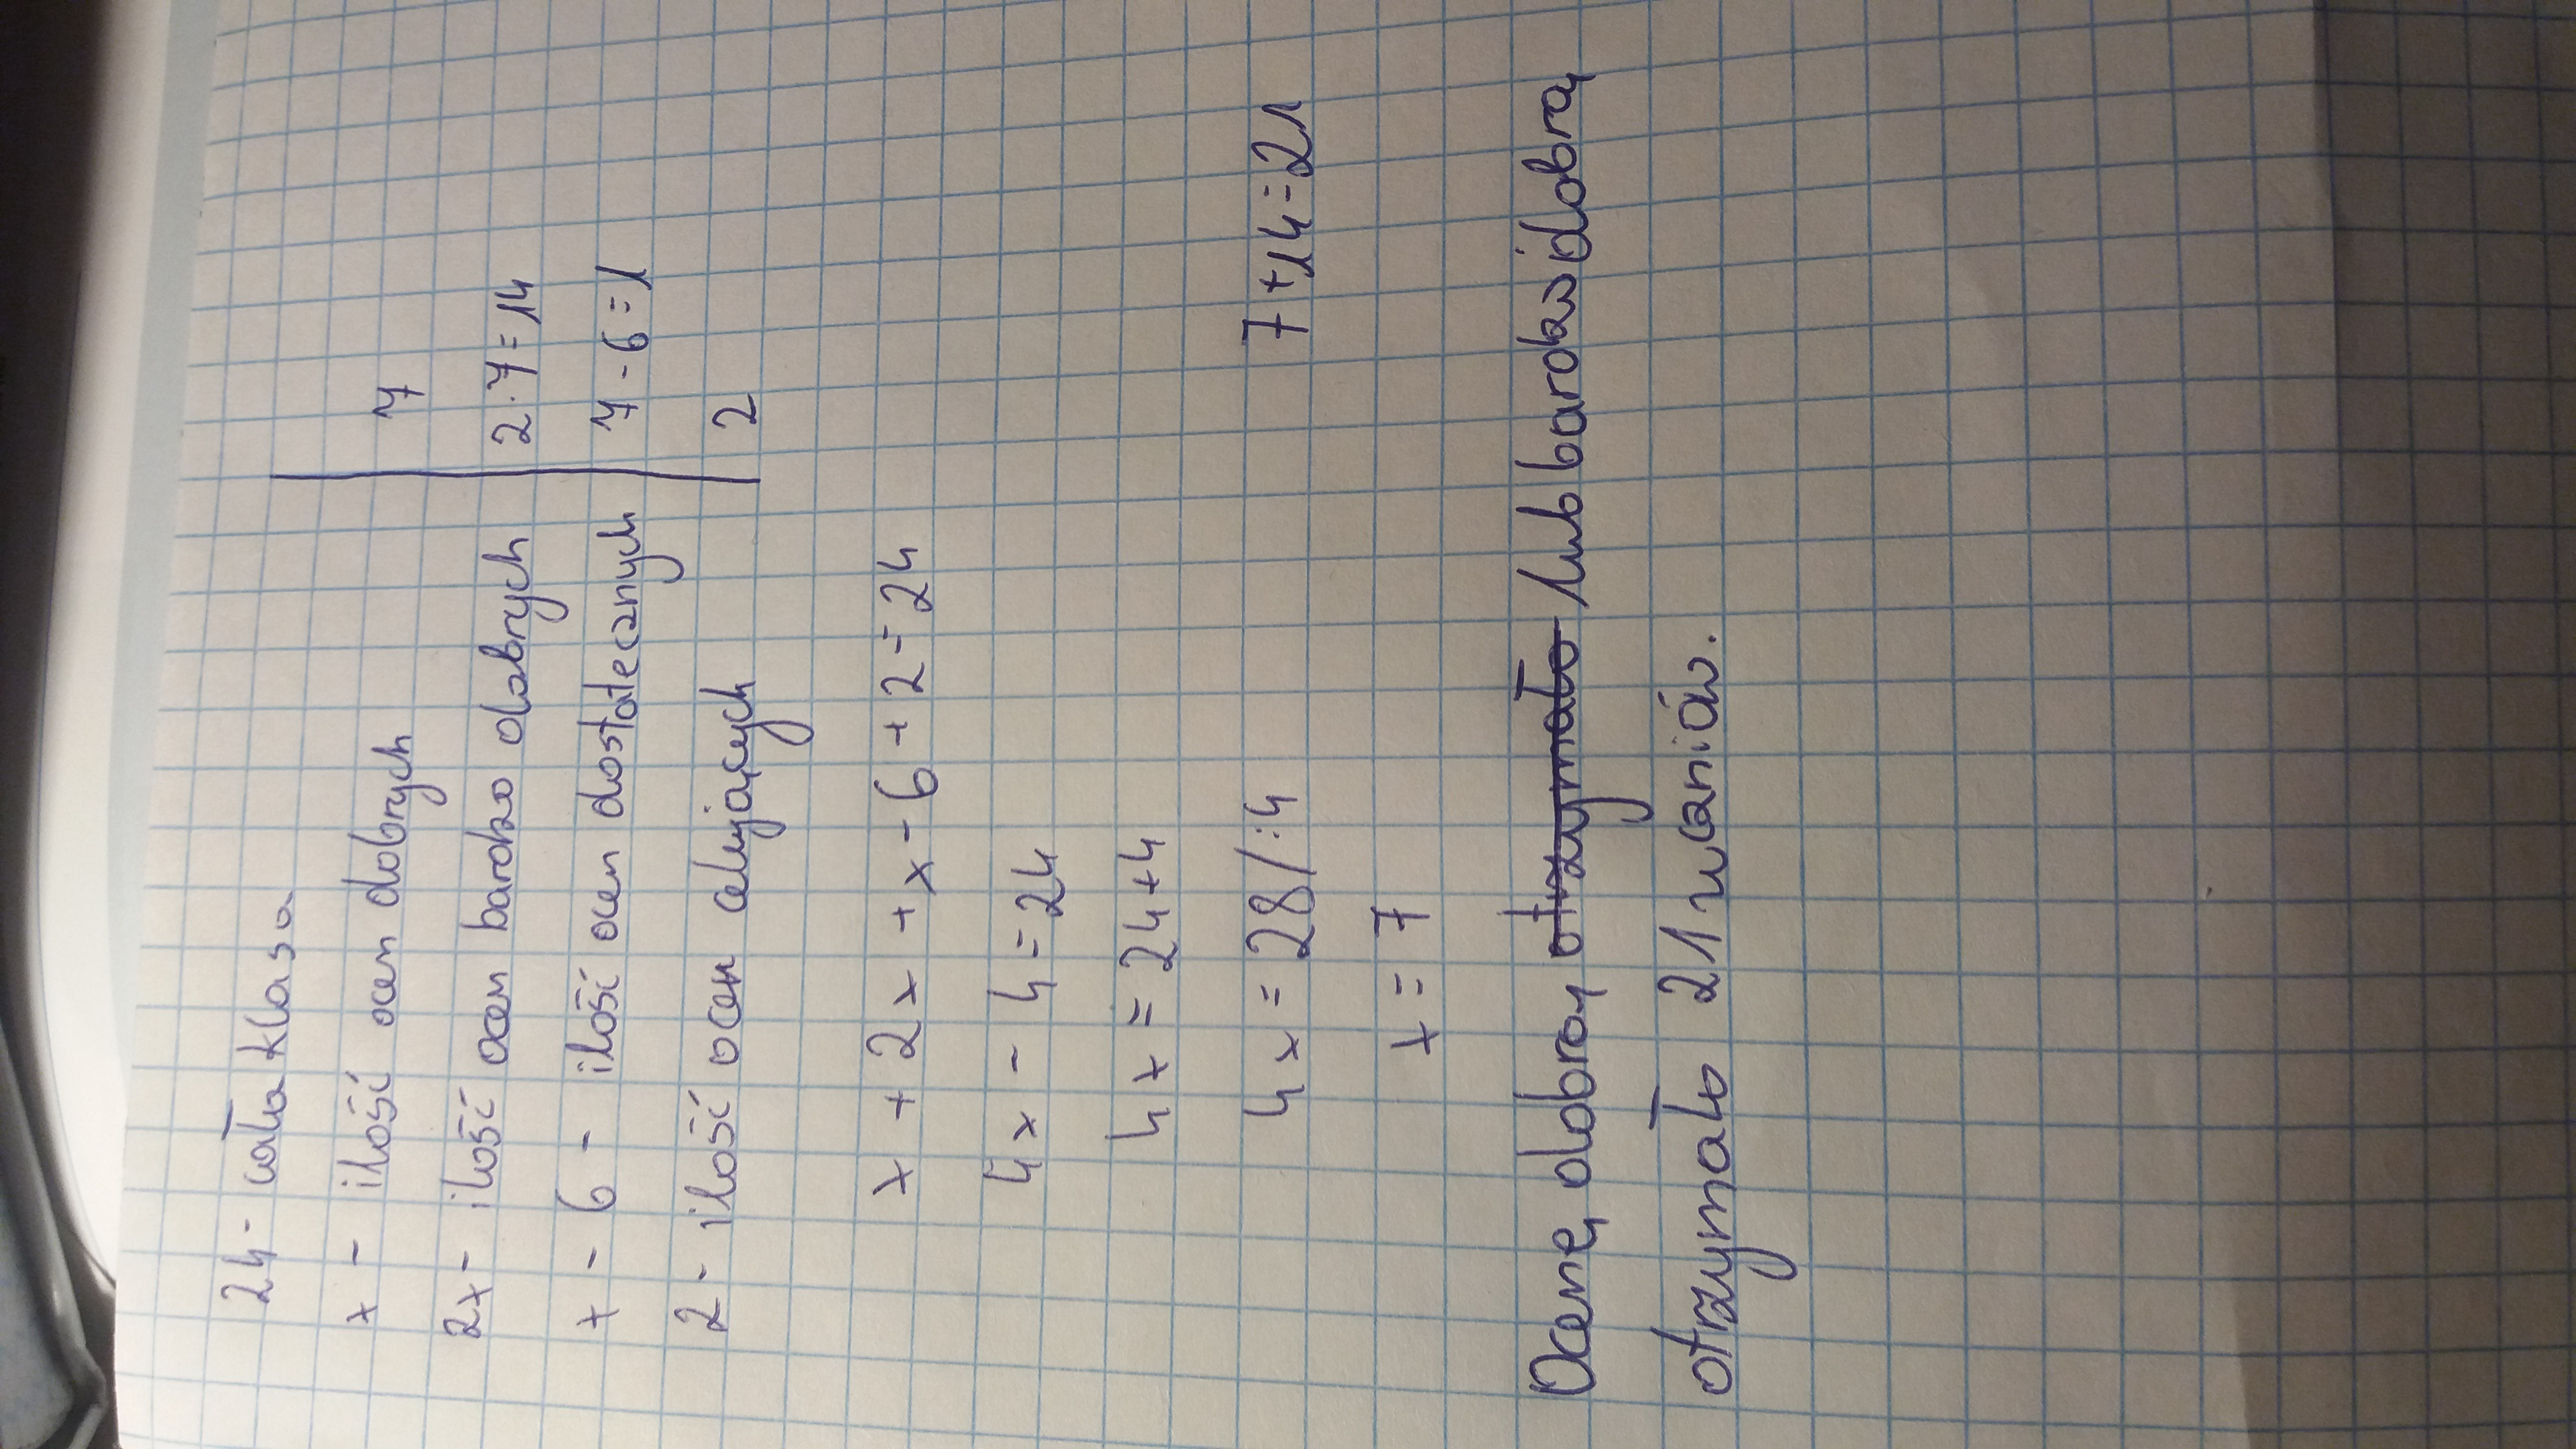 24 - cała klasa
x - ilość ocen dobrych | 7
2x - ilość ocen bardzo dobrych | 2·7=14
x - 6 - ilość ocen dostatecznych | 7-6=1
2 - ilość ocen celujących | 2
x + 2x + x - 6 + 2 = 24
4x - 4 = 24
4x = 24+4
4x = 28/:4 7+14=21
x = 7
Ocenę dobrą otrzymało lub bardzo dobrą
otrzymało 21 uczniów.